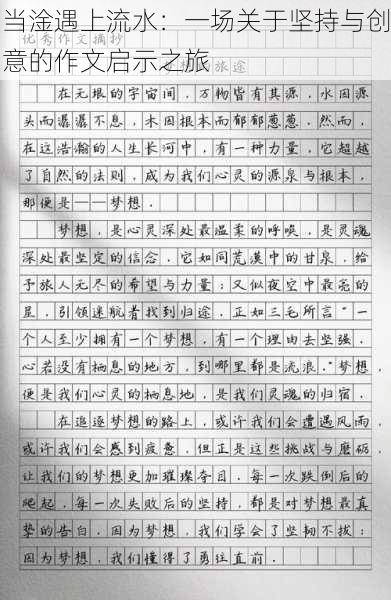 当淦遇上流水：一场关于坚持与创
意的作文启示之旅
优秀作文摘抄
梦想的旅途
在无垠的宇宙间，万物皆有其源，水因源
头而潺潺不息，木因根本而郁郁葱葱．然而，
在这浩瀚的人生长河中，有一种力量，它超越
了自然的法则，成为我们心灵的源泉与根本，
那便是——梦想．
梦想，是心灵深处最温柔的呼唤，是灵魂
深处最坚定的信念，它如同荒漠中的甘泉，给
予旅人无尽的希望与力量；又似夜空中最亮的
星，引领迷航者找到归途．正如三毛所言"一
个人至少拥有一个梦想，有一个理由去坚强．
心若没有栖息的地方，到哪里都是流浪．"梦想，
便是我们心灵的栖息地，是我们灵魂的归宿．
在追逐梦想的路上，或许我们会遭遇风雨，
或许我们会感到疲惫，但正是这些挑战与磨砺，
让我们的梦想更加璀璨夺目．每一次跌倒后的
爬起，每一次失败后的坚持，都是对梦想最真
挚的告白．因为梦想，我们学会了坚韧不拔；
因为梦想，我们懂得了勇往直前．